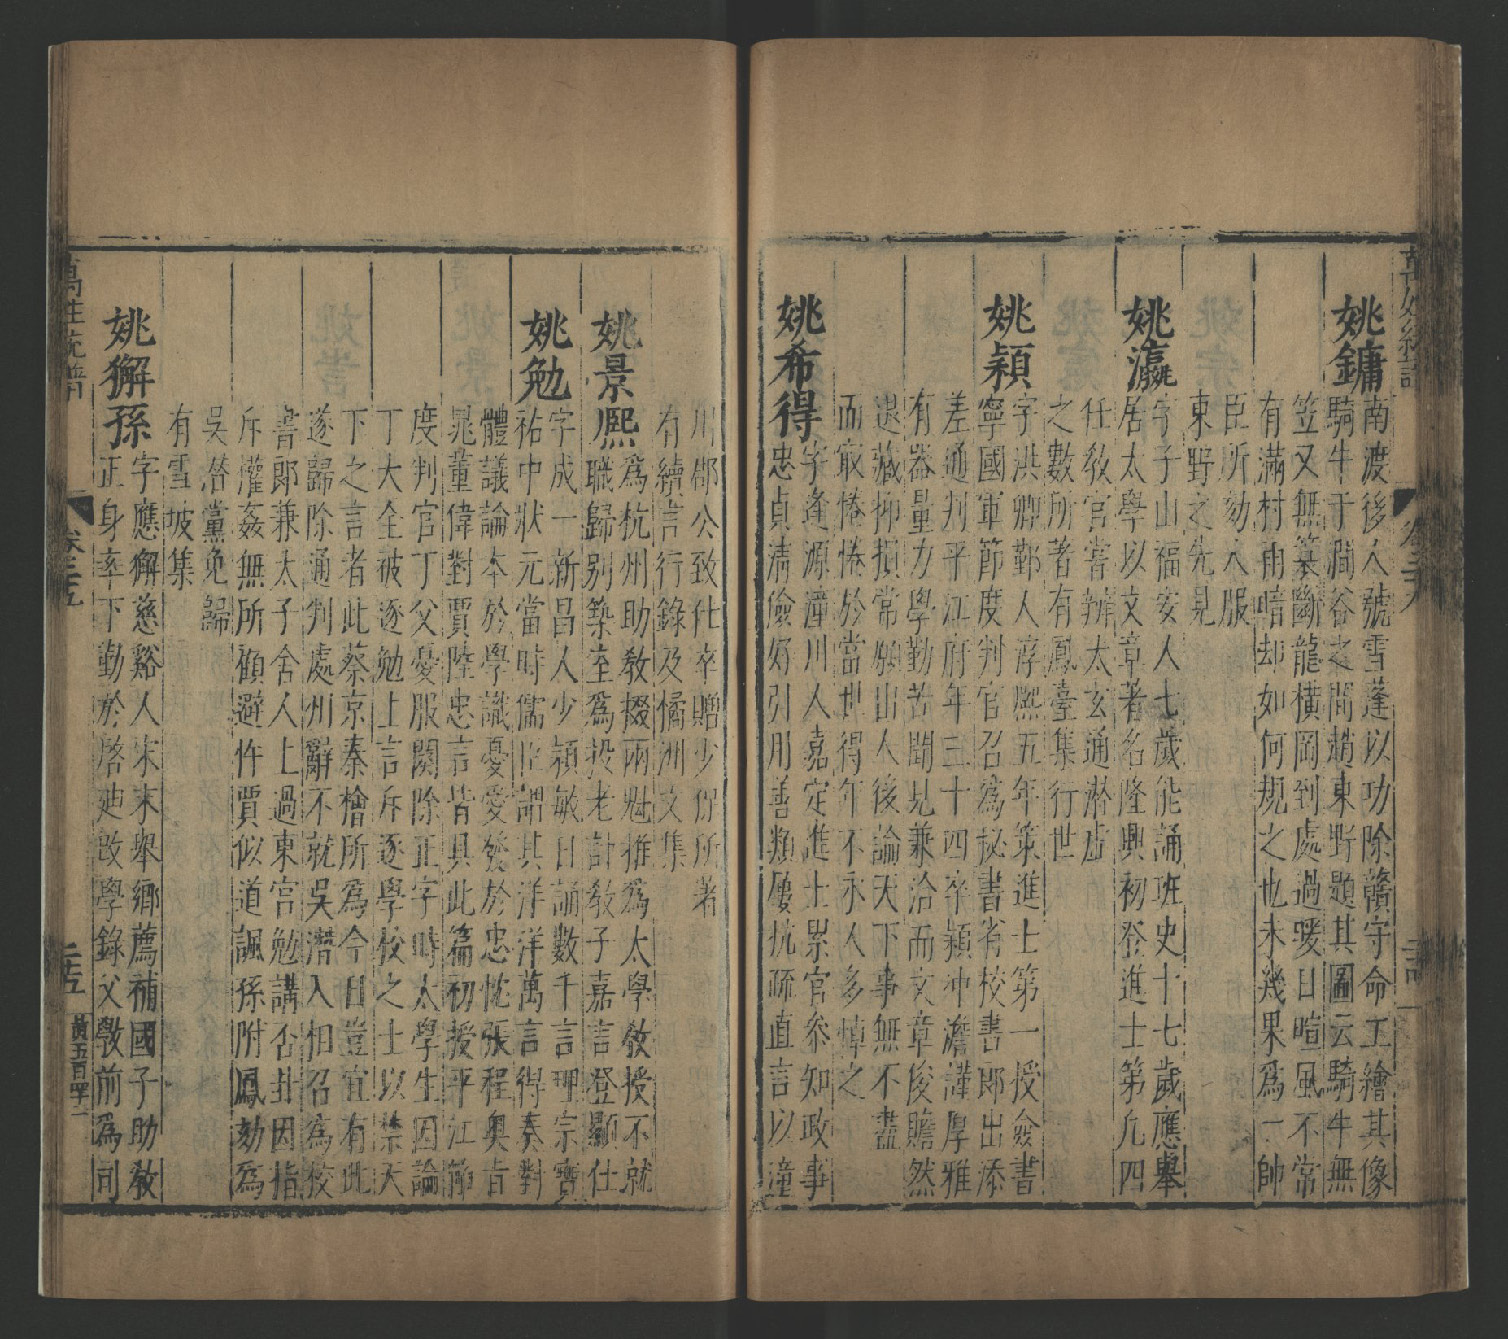 姚鏞
南渡後人號雪蓬以功除贛守命工繪其像
騎牛于澗谷之間趙東野題其圖云騎牛無
笠又無簑斷龍橫岡到處過暖日暄風不常
有滿村雨暗却如何規之也未幾果為一帥
臣所劾人服
東野之先見
姚瀛
字子山福安人七歲能誦班史十七歲應舉
居太學以文章著名隆興初登進士第九四
任教官嘗辦太玄通潛虛
之數所著有鳳臺集行世
姚穎
字洪卿鄞人淳熙五年策進士第一授僉書
寧國軍節度判官召為祕書省校書郎出添
差通判平江府年三十四卒穎冲澹謹厚雅
有器量力學勤苦聞見兼洽而文章俊贍然
退藏抑損常願出人後論天下事無不盡
而㝡惓惓於當世得年不永人多悼之
姚希得
字逢源潼川人嘉定進士累官參知政事
忠貞清儉好引用善類屢抗疏直言以潼
川郡公致仕卒贈少保所著
有續言行錄及橘洲文集
姚景熈
為杭州助教掇兩魁推為太學教授不就
職歸别築室為投老計教子嘉言登顯仕
姚勉
字成一新昌人少穎敏日誦數千言理宗寶
祐中狀元當時儒臣謂其洋洋萬言得奏對
體議論本於學識憂愛發於忠忱張程奥旨
晁董偉對賈陸忠言皆具此篇初授平江節
度判官丁父憂服闋除正字時太學生因論
丁大全被逐勉上言斥逐學校之士以禁天
下之言者此蔡京秦檜所為今日豈宜有此
遂歸除通判處州辭不就吳潛入相召為校
書郎兼太子舍人上過東宫勉講否卦因指
斥㩲姦無所顧避忤賈似道諷孫附鳳劾為
吳潛黨免歸
有雪坡集
姚獬孫
字應獬慈谿人宋末舉鄉薦補國子助教
正身率下勤於啓廸改學錄父斆前為司
萬姓統譜
卷三五
二五
黃五百四十二